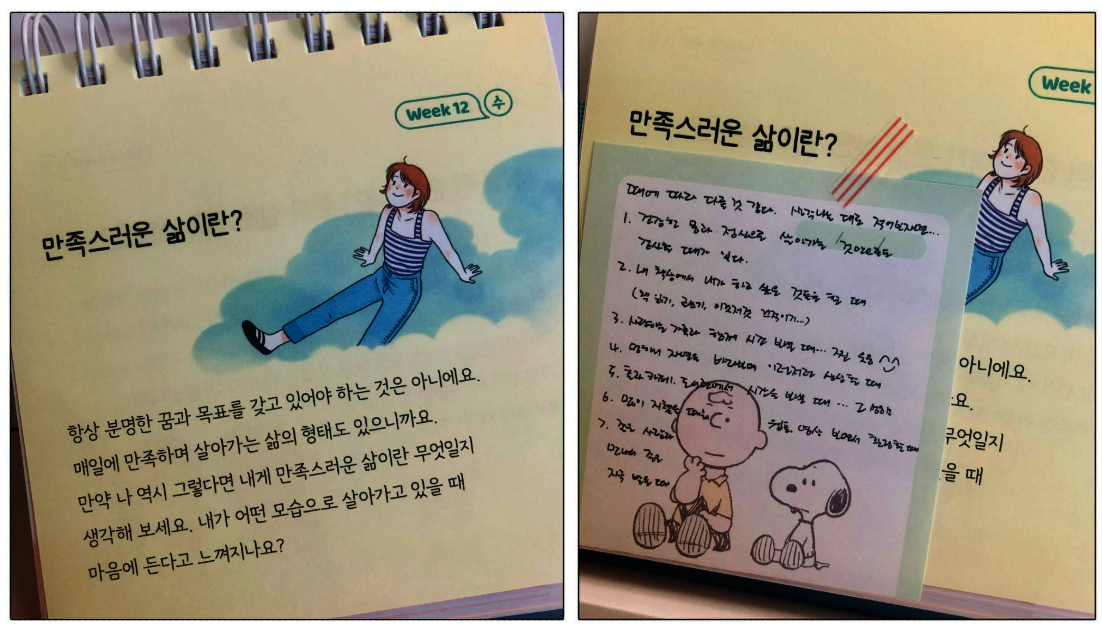 Week 12 수
만족스러운 삶이란?
항상 분명한 꿈과 목표를 갖고 있어야 하는 것은 아니에요.
매일에 만족하며 살아가는 삶의 형태도 있으니까요.
만약 나 역시 그렇다면 내게 만족스러운 삶이란 무엇일지
생각해 보세요. 내가 어떤 모습으로 살아가고 있을 때
마음에 든다고 느껴지나요?
Week
만족스러운 삶이란?
때에 따라 다를 것 같다. 생각나는 대로 적어보자면...
1. 건강한 몸과 정신으로 살아가는 것만으로도
감사할 때가 있다.
2. 내 책상에서 내가 하고 싶은 것들을 할 때
(책 읽기, 이것저것 끄적이기...)
3. 사랑하는 가족과 함께 시간 보낼 때... 찐 웃음
4. 멍하니 자연을 바라보며 이런저런 상상할 때
5. 혼자 카페, 도서관에서 시간을 보낼 때 ...
6. 많이 지쳤을 때 영상 보면서
7. 좋은 사람과
만나서 좋은
자극 받을 때
아니에요.
요.
무엇일지
을 때